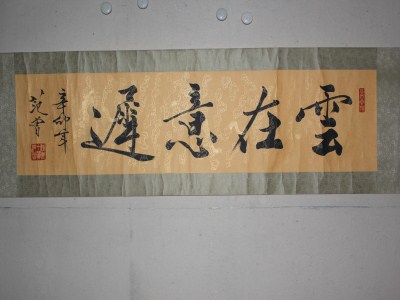 雲在意遲
辛卯年